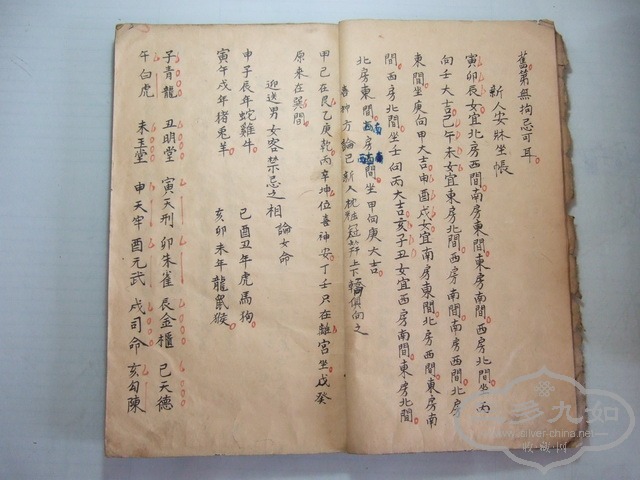 舊第無拘忌可耳
新人安牀坐帳
寅卯辰女宜北房東間東房南間西房北間坐丙
向壬大吉巳午未女宜東房北間西房南間南房西間北房
東間坐庚向甲大吉申酉戌女宜南房東間北房西間東房南
間西房北間坐壬向丙大吉亥子丑女宜西房南間東房北間
北房東間南房西間坐甲向庚大吉
喜神方論已新人梳粧冠笄上下轎俱向之
甲己在艮乙庚乾丙辛坤位喜神安丁壬只在離宮坐戊癸
原来在巽間
迎送男女客禁忌之相 論女命
申子辰年蛇雞牛 巳酉丑年虎馬狗
寅午戌年猪兔羊 亥卯未年龍鼠猴
子青龍 丑明堂 寅天刑 卯朱雀 辰金櫃 巳天德
午白虎 未玉堂 申天牢 酉元武 戌司命 亥勾陳
九多九如
www.silver-china.net
收藏网